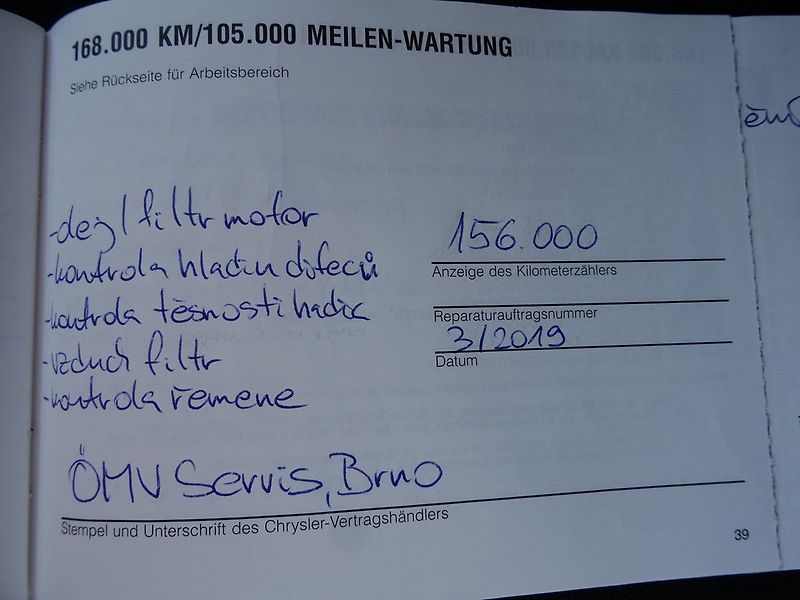 168.000 KM/105.000 MEILEN-WARTUNG
Siehe Rückseite für Arbeitsbereich
-filtr motor
156.000
Anzeige des Kilometerzählers
-kontrola hladin
-kontrola těsnosti hadic
Reparaturauftragsnummer
3/2019
Datum
-vzduch filtr
-kontrola řemene
ÖMV Servis, Brno
Stempel und Unterschrift des Chrysler-Vertragshändlers
39